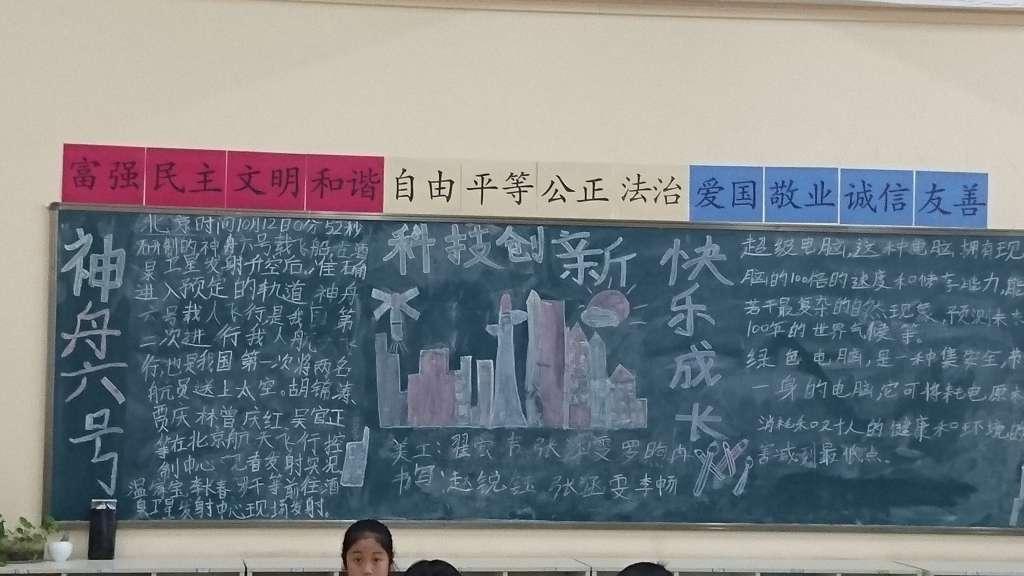 富强 民主 文明 和谐 自由 平等 公正 法治 爱国 敬业 诚信 友善
神舟六号
北京时间10月12日0分52秒
研制的神舟六号载飞船在酒
星发射升空后,准确
进入预定的轨道 神舟
六号载人飞行是我国 第
二次进行载人航
行也是我国第一次将两名
航员送上太空。胡锦涛
贾庆林曾庆红吴官正
等在北京航天飞行控
制中心 观看发射实况
温家宝 李长春 等前往酒
发射中心现场
科技创新
美工:翟 书 张 雯 罗
书写:赵锐 张 雯 李畅
快乐成长
超级电脑,这种电脑拥有现
脑的100倍的速度和
若干最复杂的自然现象,预测未
100年的世界气候等。
绿色电脑,是一种集安全
一身的电脑,它可将耗
消耗和对人的健康和环境的
害减到最低点.